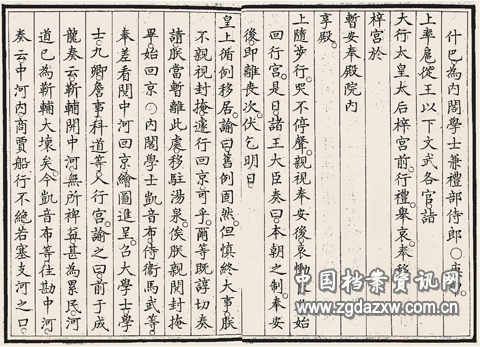 什巴為內閣學士兼禮部侍郎〇
上率扈從王以下文武各官詣
大行太皇太后梓宮前行禮舉哀奉移
梓宮於
暫安奉殿院內
享殿
上隨步行哭不停聲親視奉安後哀慟始
回行宮是日諸王大臣奏曰本朝之制奉安
後即離喪次伏乞明日
皇上循例移居諭曰舊例固然但慎終大事朕
不親視封掩遽行回京可乎爾等既諄切奏
請朕當暫離此處移駐湯泉俟朕親閱封掩
畢始回京〇內閣學士凱音布侍衛馬武等
奉差看閱中河回京繪圖進呈召大學士學
士九卿詹事科道等入行宮諭之曰前于成
龍奏云靳輔開中河無所裨益甚為累民河
道已為靳輔大壞矣今凱音布等往勘中河
奏云中河內商賈船行不絕若塞支河之口
中国档案资讯网
www.zgdazxw.com.cn